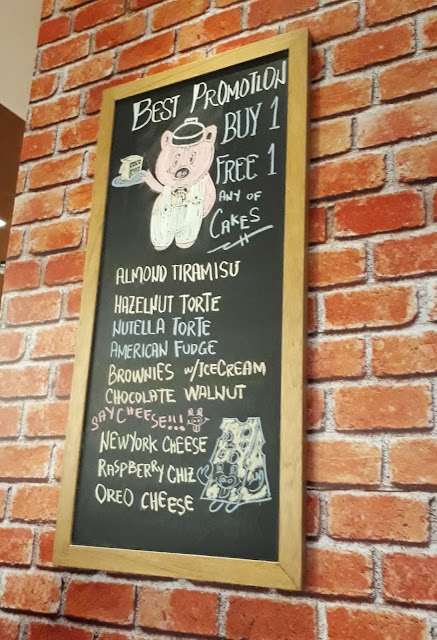 BEST PROMOTION
BUY 1
FREE 1
ANY OF
CAKES
ALMOND TIRAMISU
HAZELNUT TORTE
NUTELLA TORTE
AMERICAN FUDGE
BROWNIES W/ICECREAM
CHOCOLATE WALNUT
SAY CHEESE!!!
NEWYORK CHEESE
RASPBERRY CHIZ
OREO CHEESE